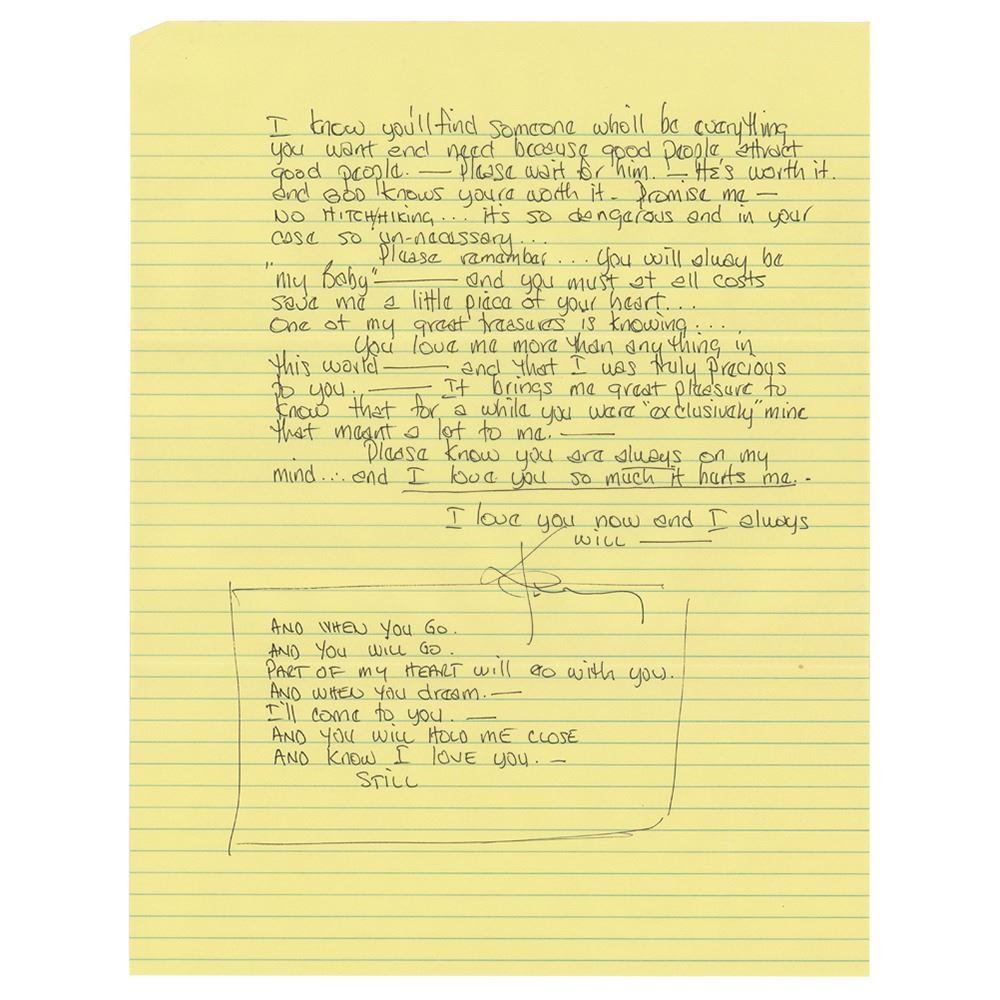 I know you'll find someone who'll be everything
you want and need because good people attract
good people. — Please wait for him. — He's worth it.
and GOD knows you're worth it - Promise me —
NO HITCHHIKING... it's so dangerous and in your
case so un-necessary...
Please remember... You will alway be
"my Baby" —— and you must at all costs
save me a little piece of your heart...
One of my great treasures is knowing....
You love me more than anything in
this world —— and that I was truly precious
to you. —— It brings me great pleasure to
know that for a while you were "exclusively" mine
that meant a lot to me. ——
Please know you are always on my
mind... and I love you so much it hurts me..
I love you now and I always
will ——
AND WHEN YOU GO.
AND YOU WILL GO.
PART OF MY HEART WILL GO WITH YOU.
AND WHEN YOU dream. —
I'll come to you. —
AND YOU WILL HOLD ME CLOSE
AND KNOW I LOVE YOU. —
STILL